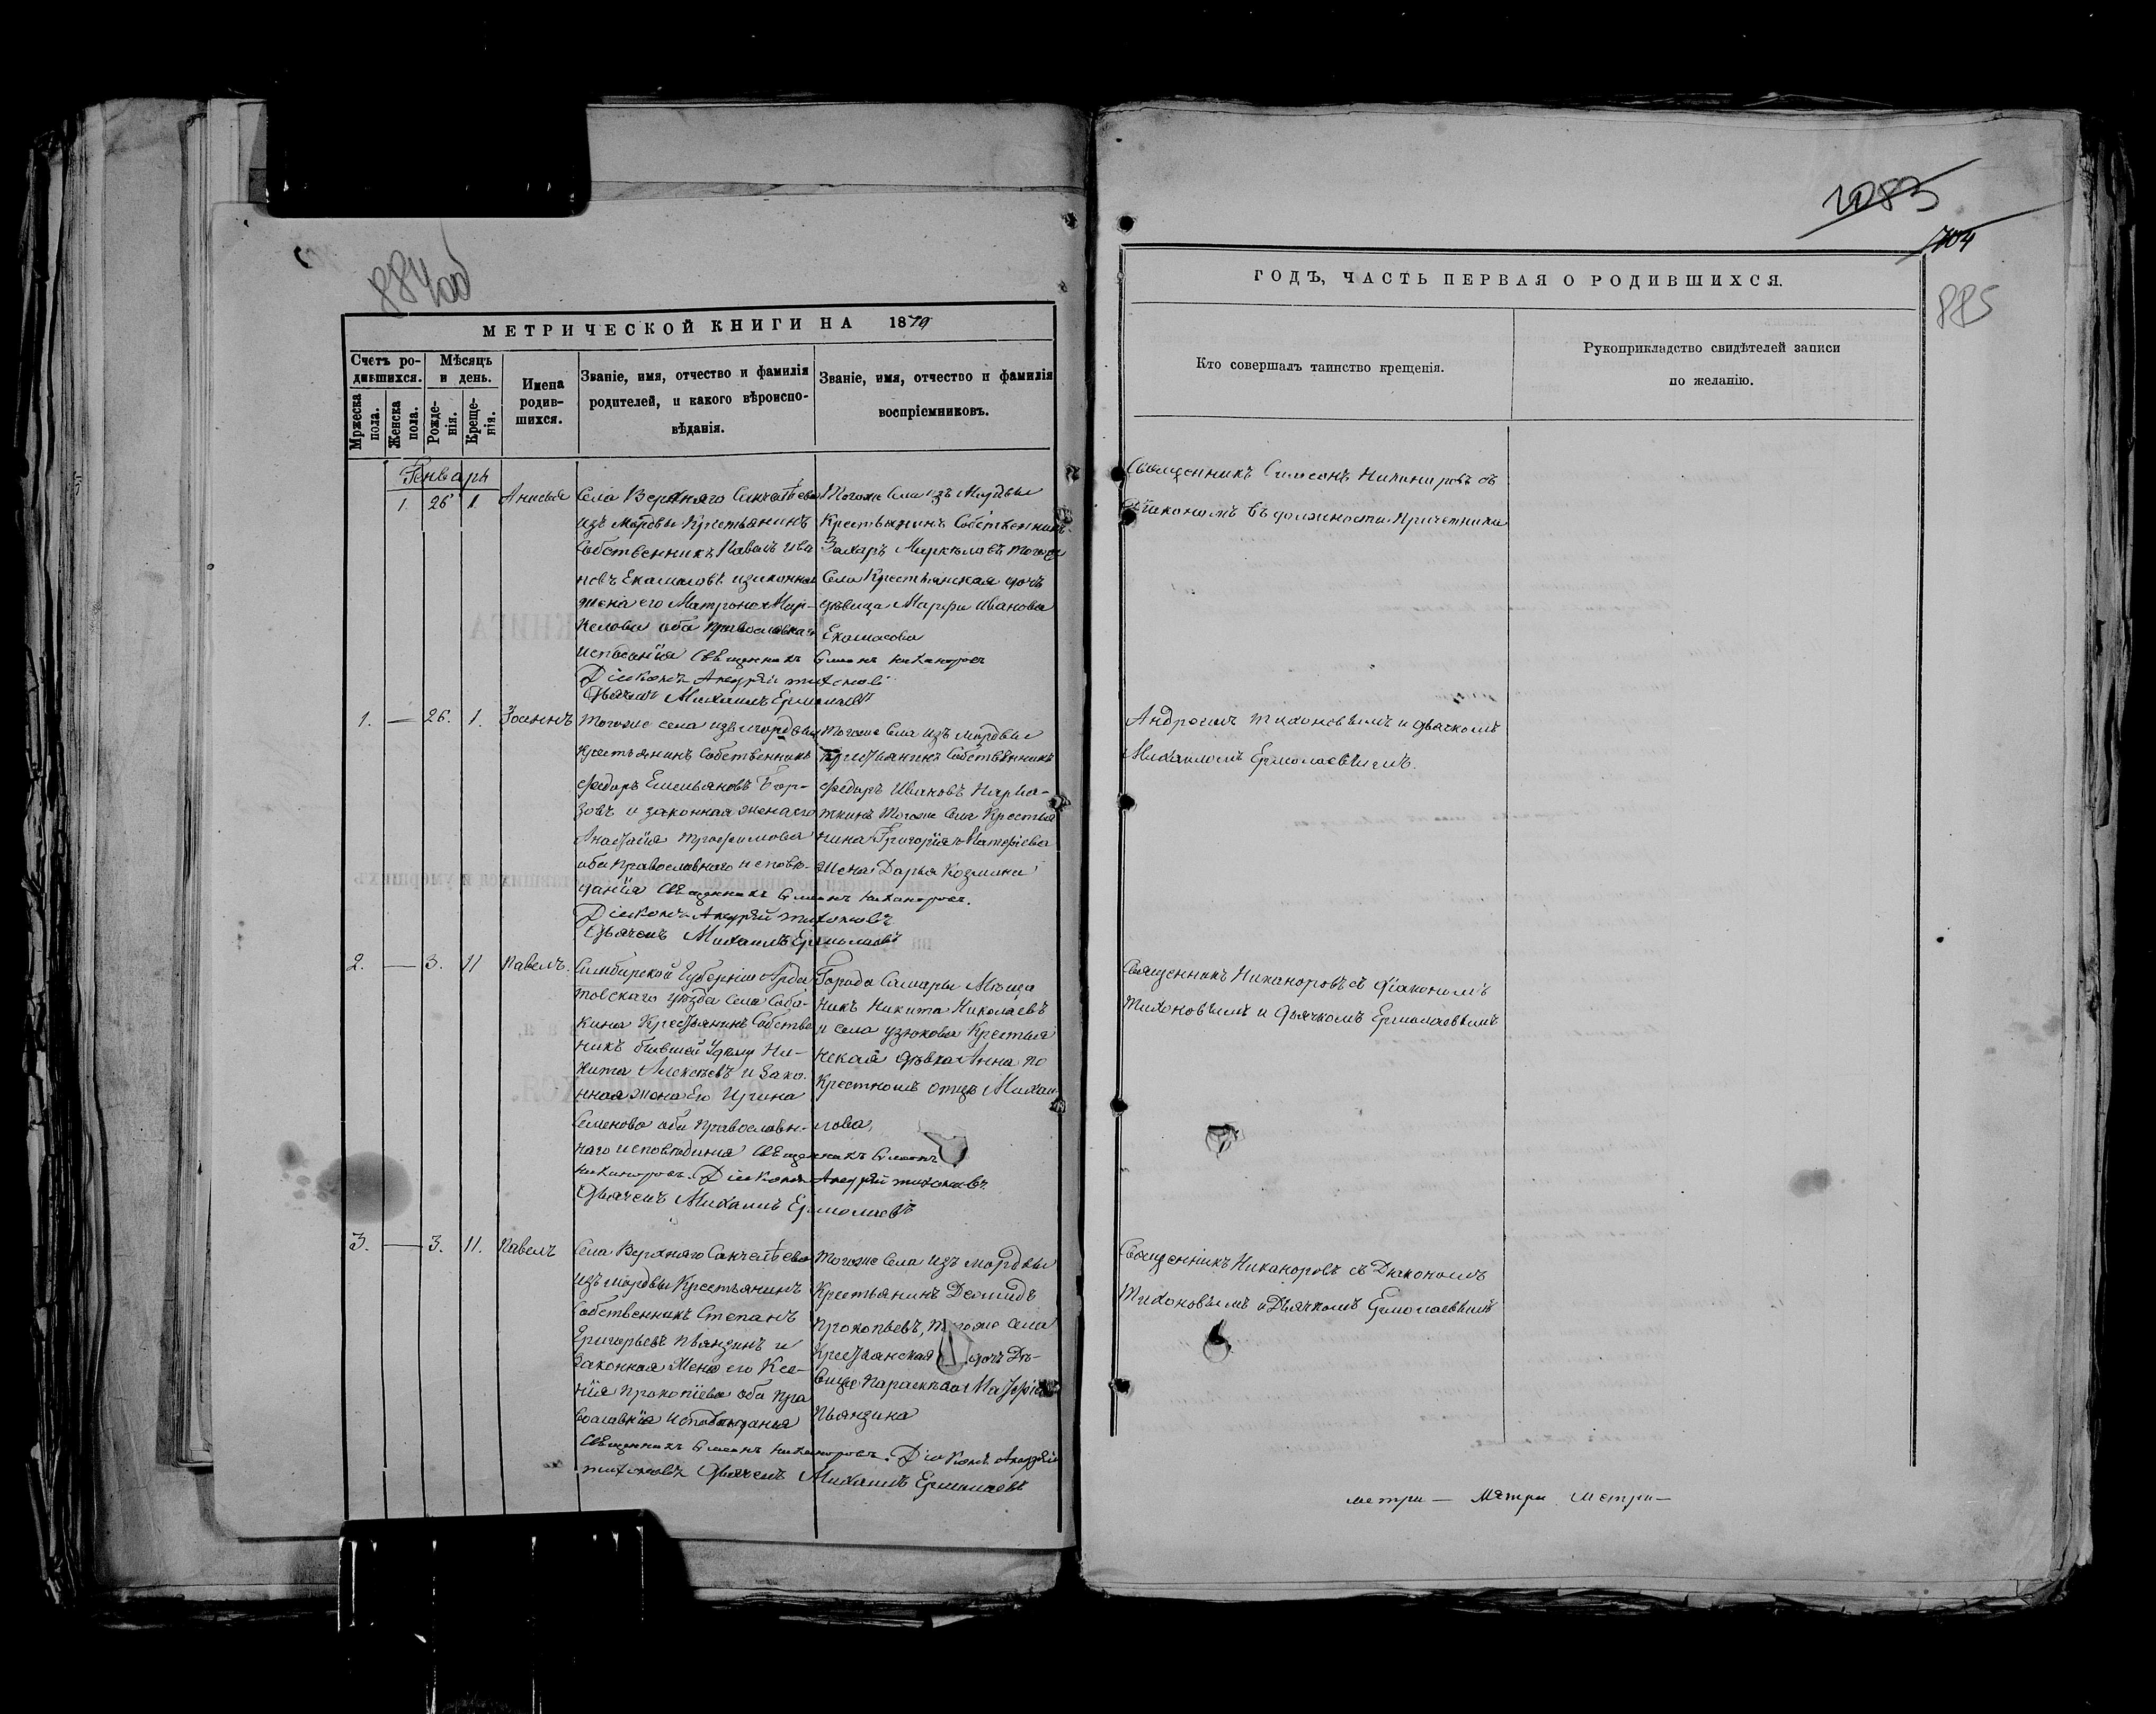 884об
МЕТРИЧЕСКОЙ КНИГИ НА 1879
Счетъ ро-
дившихся.
Мѣсяцъ
и день.
Имена
родив-
шихся.
Званіе, имя, отчество и фамилія
родителей, и какого вѣроиспо-
вѣданія.
Званіе, имя, отчество и фамилія
воспріемниковъ.
Мржеска
пола.
Женска
пола.
Рожде-
нія.
Креще-
нія.
Генварь
1. 26 1. Анисья
Села Верхняго Санчелѣева
изъ мордвы Крестьянинъ
Собственникъ Ива
новъ Екамасовъ и законная
жена его Матрона Мар-
келова оба православнаго
исповѣданія Священникъ Симеонъ Никаноровъ
Діаконъ Андрей Тихоновъ
Дьячекъ Михаилъ Ермолаевъ
Тогоже Села изъ Мордвы
Крестьянинъ Собственникъ
Захаръ Маркеловъ тогоже
Села Крестьянская дочь
дѣвица Марфа Иванова
Екамасова
1. — 26. 1. Іоаннъ
Тогоже села изъ мордвы
Крестьянинъ Собственникъ
Федоръ Емельяновъ
и законная жена его
Анастасія Трофимова
оба православнаго исповѣ-
данія Священникъ Симеонъ Никаноровъ.
Діаконъ Андрей Тихоновъ
Дьячекъ Михаилъ Ермолаевъ
Тогоже Села изъ мордвы
Крестьянинъ Собственникъ
Федоръ Ивановъ
Тогоже Села Крестья
нина Григорія
жена Дарья Козмина
2. — 3. 11 Павелъ.
Симбирской Губерніи Арда
товскаго уѣзда Села Соба-
кина Крестьянинъ Собствен
никъ бывшей Удѣлу Ни-
кита Алексѣевъ и зако-
нная жена Его Ирина
Семенова оба православн-
наго исповѣданія Священникъ Симеонъ
Никаноровъ. Діаконъ Андрей Тихоновъ.
Дьячекъ Михаилъ Ермолаевъ
Города Самары Мѣща
никъ Никита Николаевъ
и села узюкова Крестья
нская дѣвка Анна по
Крестномъ отцѣ Михаи-
лова,
3. — 3. 11. Павелъ
Села Верхняго Санчелѣева
изъ мордвы Крестьянинъ
Собственникъ Степанъ
Григорьевъ Пьянзинъ и
Законная Жена его Ксе-
нія Прокопіева оба пра
вославнія исповѣданія
Священникъ Симеонъ Никаноровъ. Діаконъ Андрей
Тихоновъ Дьячекъ Михаилъ Ермолаевъ
Тогоже Села изъ мордвы
Крестьянинъ Деомидъ
Прокопьевъ, тогоже села
Крестьянская дочь Дѣ-
вица Параскева
Пьянзина
1083
704
885
ГОДЪ, ЧАСТЬ ПЕРВАЯ О РОДИВШИХСЯ.
Кто совершалъ таинство крещенія.
Рукоприкладство свидѣтелей записи
по желанію.
Священникъ Симеонъ Никаноровъ съ
Діакономъ въ должности Причетника
Андреемъ Тихоновымъ и дьячкомъ
Михаиломъ Ермолаевымъ.
Священникъ Никаноровъ съ Діакономъ
Тихоновымъ и Дьячкомъ Ермолаевымъ
Священникъ Никаноровъ съ Диакономъ
Тихоновымъ и Дьячкомъ Ермолаевымъ
метри — Метри Метри —